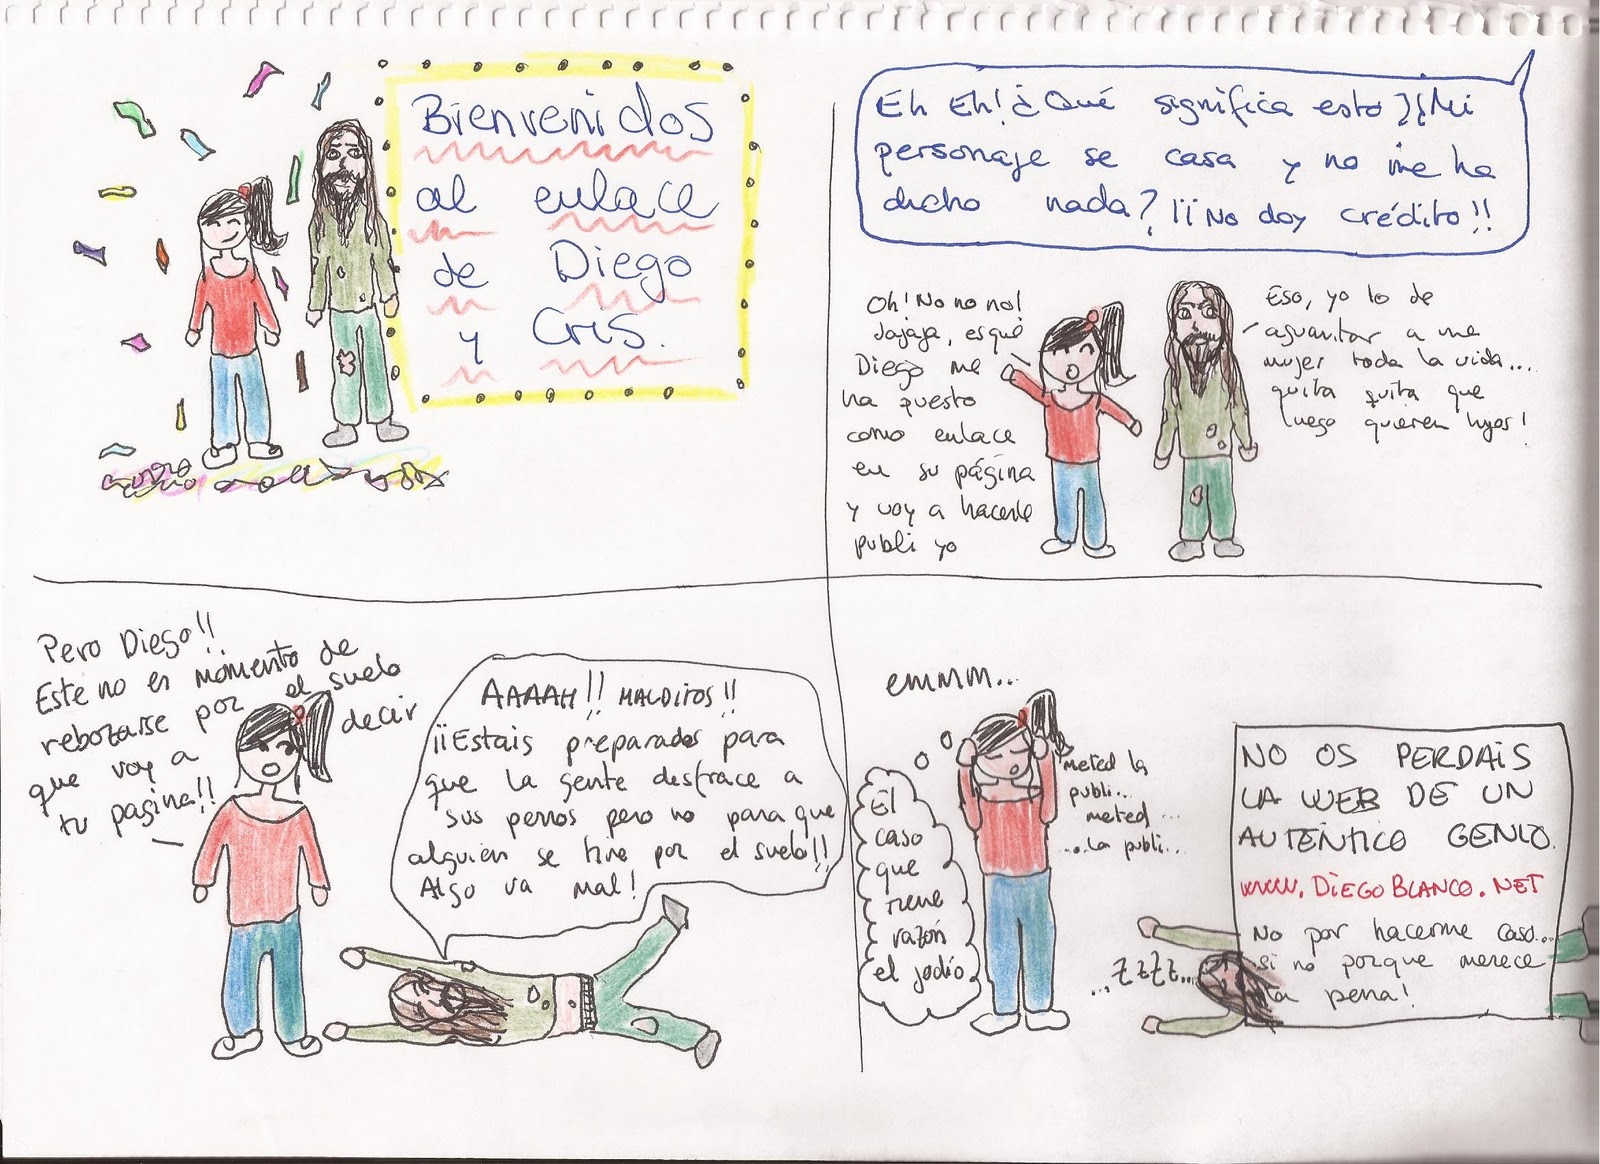 Bienvenidos
al enlace
de Diego
y Cris.
Eh Eh! ¿Qué significa esto? ¿Mi
personaje se casa y no me ha
dicho nada? ¡¡No doy crédito!!
Oh! No no no!
Jajaja, es que
Diego me
ha puesto
como enlace
en su página
y voy a hacerle
publi yo
Eso, yo lo de
aguantar a una
mujer toda la vida...
quita quita que
luego quieren hijos!
Pero Diego!!
Este no es momento de
rebozarse por el suelo
que voy a decir
tu pagina!!
AAAAH!! MALDITOS!!
¡¡Estais preparados para
que la gente disfrace a
sus perros pero no para que
alguien se tire por el suelo!!
Algo va mal!
emmm...
El
caso
que
tiene
razón
el jodío
meted la
publi...
meted...
...la publi...
...zzzz...
NO OS PERDAIS
LA WEB DE UN
AUTÉNTICO GENIO.
www.DIEGOBLANCO.NET
No por hacerme caso...
si no porque merece
la pena!